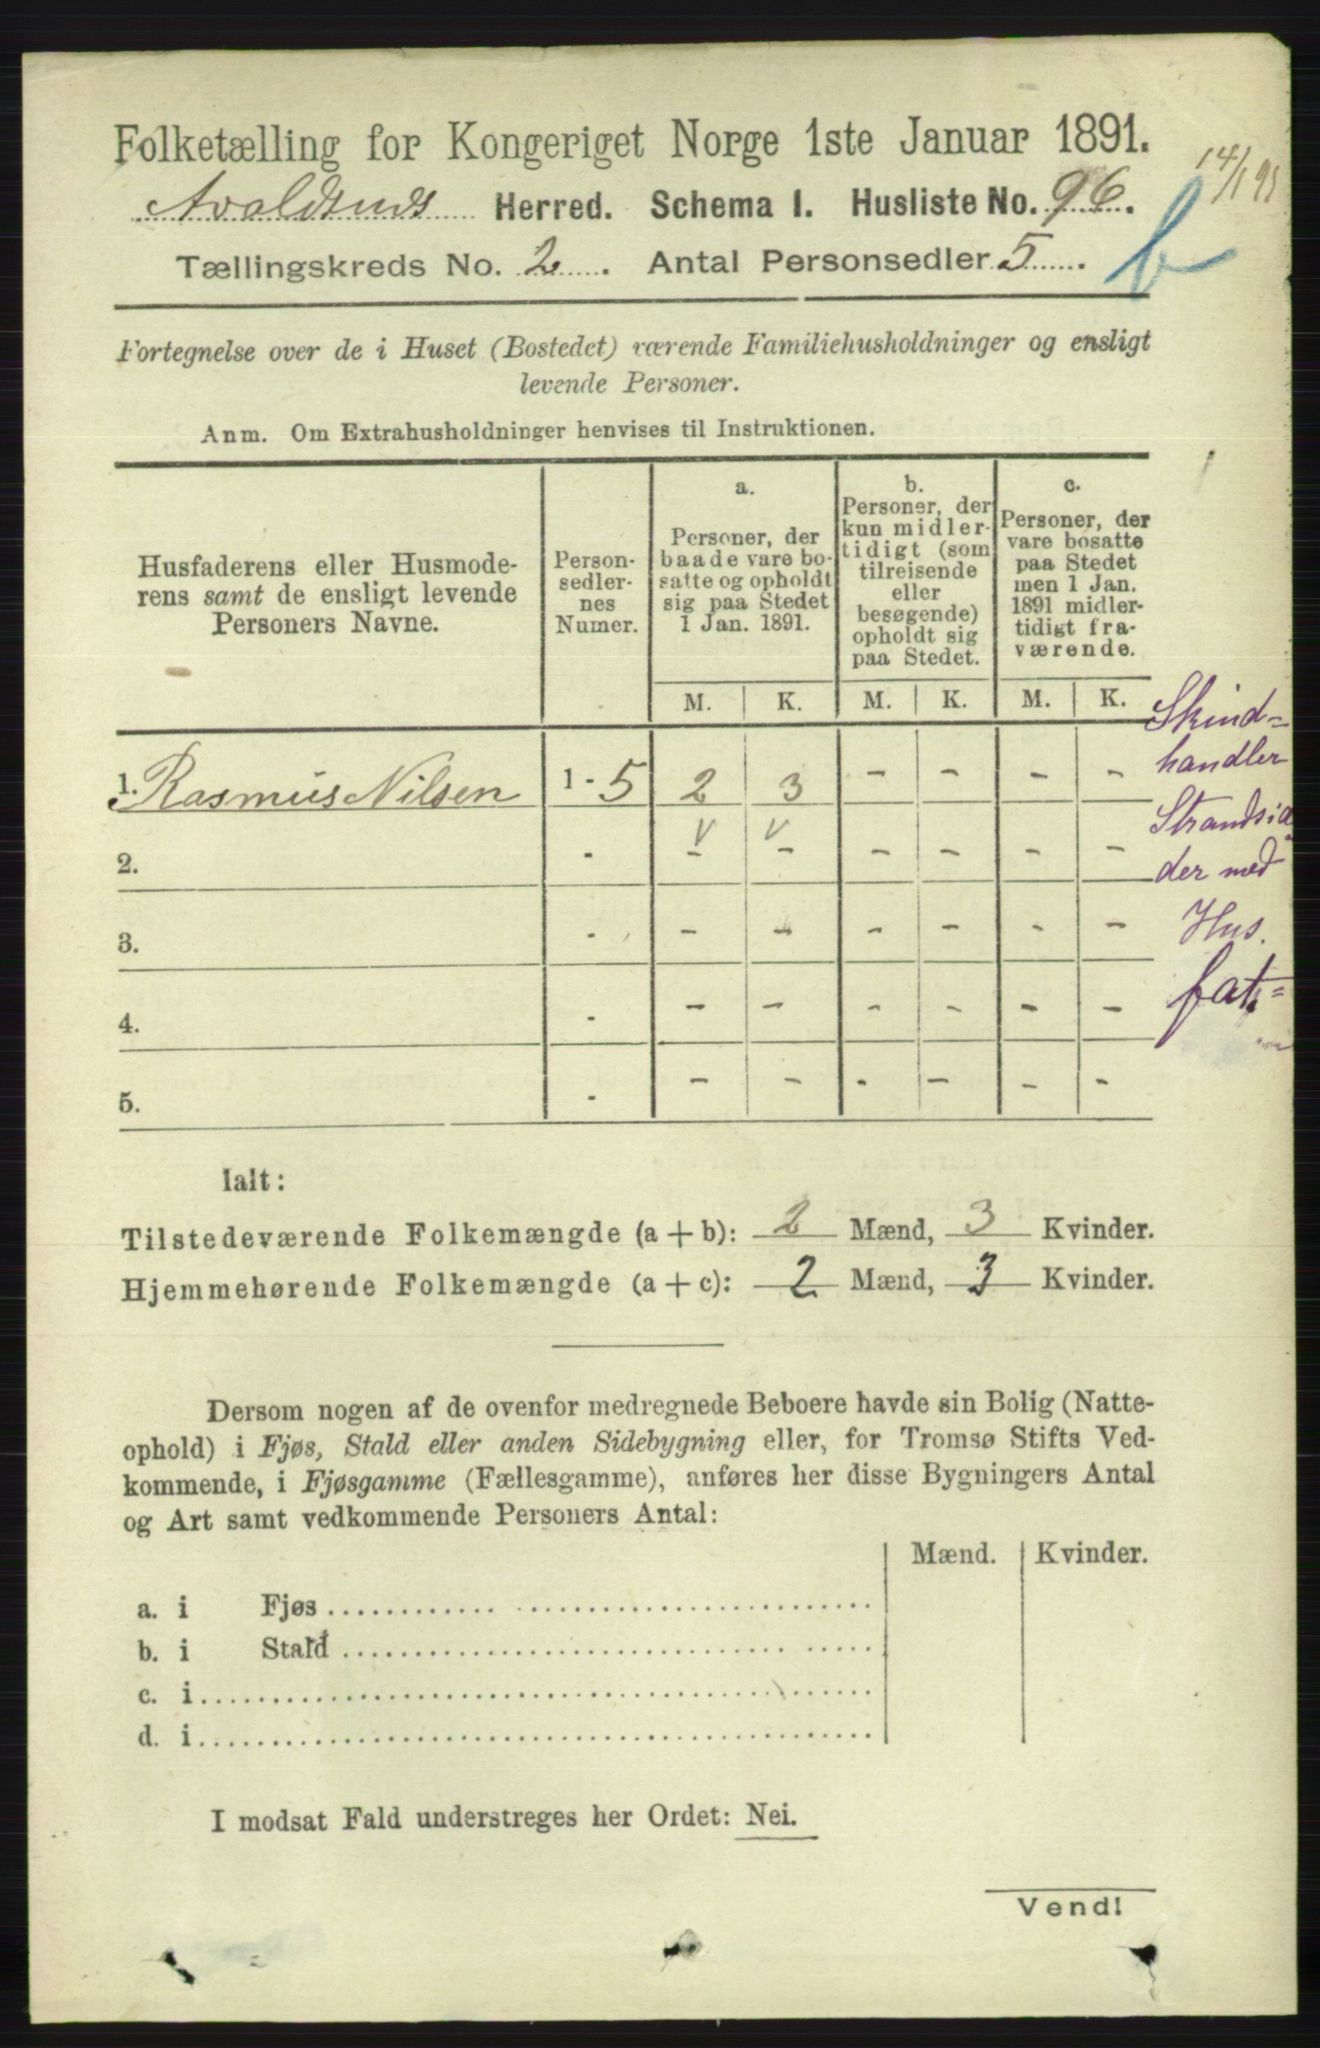 Folketælling for Kongeriget Norge 1ste Januar 1891.
14/1 91
Avaldsnds Herred. Schema I. Husliste No. 96.
b
Tællingskreds No. 2. Antal Personsedler 5.
Fortegnelse over de i Huset (Bostedet) værende Familiehusholdninger og ensligt
levende Personer.
Anm. Om Extrahusholdninger henvises til Instruktionen.
Husfaderens eller Husmode-
rens samt de ensligt levende
Personers Navne.
Person-
sedler-
nes
Numer.
a.
Personer, der
baade vare bo-
satte og opholdt
sig paa Stedet
1 Jan. 1891.
b.
Personer, der
kun midler-
tidigt (som
tilreisende
eller
besøgende)
opholdt sig
paa Stedet.
c.
Personer, der
vare bosatte
paa Stedet
men 1 Jan.
1891 midler-
tidigt fra-
værende.
M. K. M. K. M. K.
1. Rasmus Nilsen 1 - 5 2 3 - - - -
v v
2. - - - - - - -
3. - - - - - - -
4. - - - - - - -
5. - - - - - - -
Skind=
handler
Strandsid
der med
Hus.
fat.=
Ialt:
Tilstedeværende Folkemængde (a + b): 2 Mænd, 3 Kvinder.
Hjemmehørende Folkemængde (a + c): 2 Mænd, 3 Kvinder.
Dersom nogen af de ovenfor medregnede Beboere havde sin Bolig (Natte-
ophold) i Fjøs, Stald eller anden Sidebygning eller, for Tromsø Stifts Ved-
kommende, i Fjøsgamme (Fællesgamme), anføres her disse Bygningers Antal
og Art samt vedkommende Personers Antal:
Mænd. Kvinder.
a. i Fjøs
b. i Stald
c. i
d. i
I modsat Fald understreges her Ordet: Nei.
Vend!